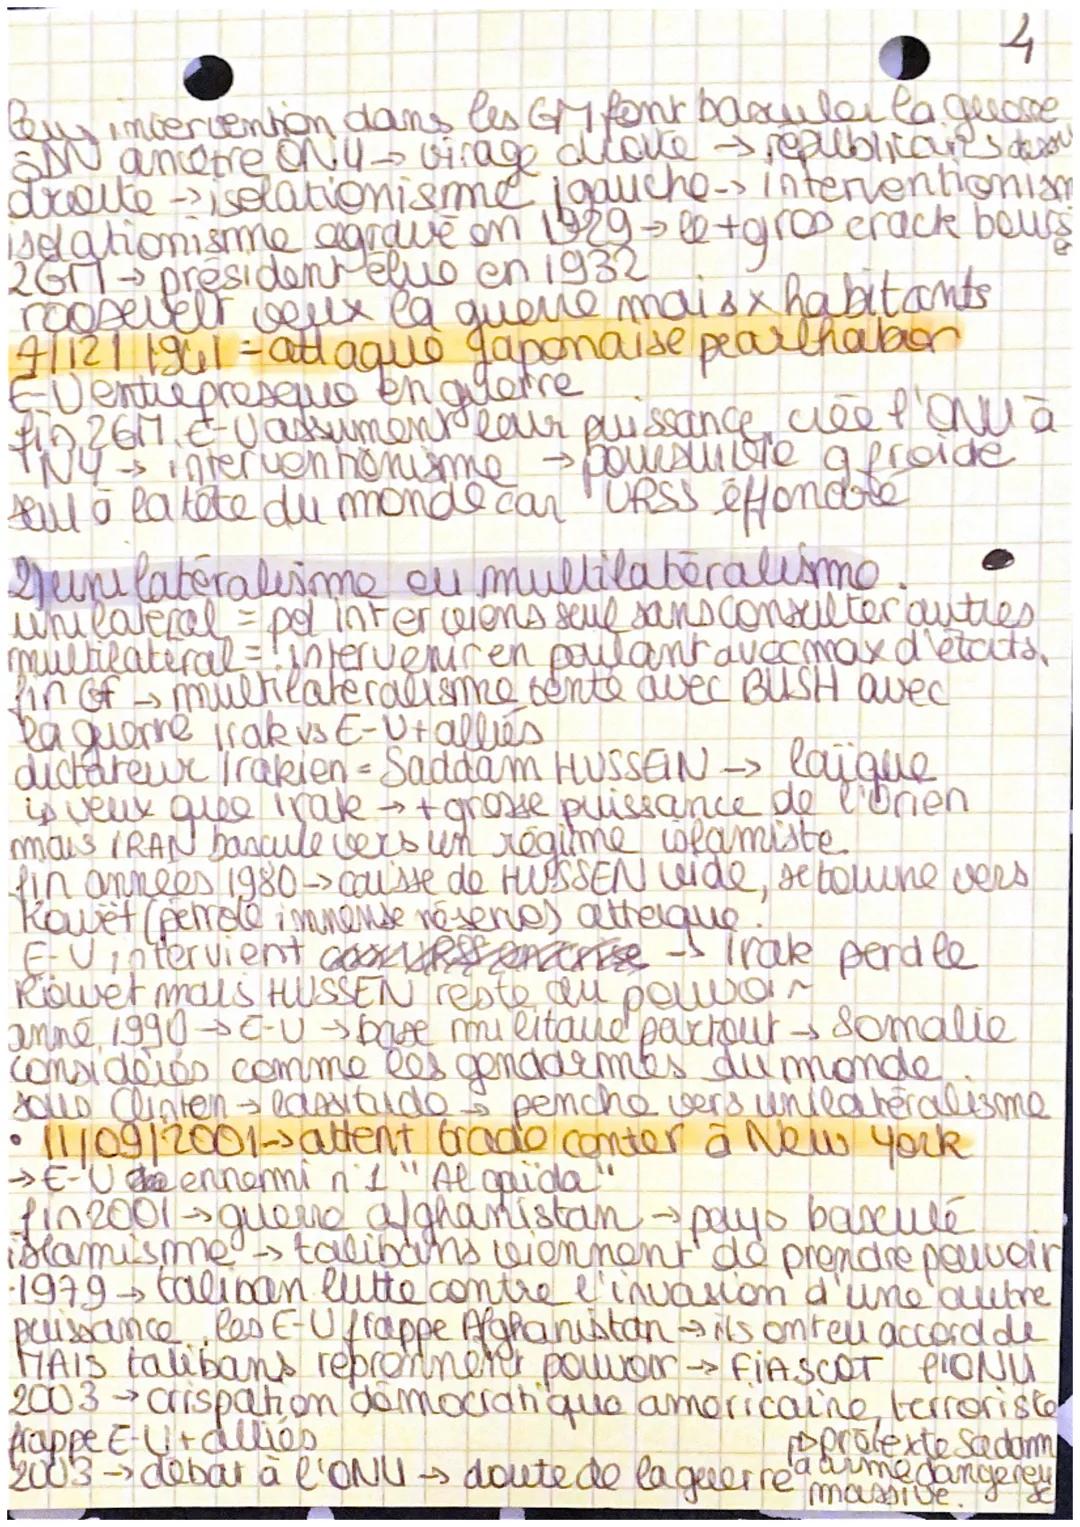 4
leur intervention dans les GM font basculer la guerre
SDN ancêtre ONU → virage droite → républicains
droite → isolationisme gauche → interventionism
isolationisme agravé en 1929 → le + gros crack bours
2GM → président élue en 1932
roosevelt veux la guerre mais x habitants
7/12/1941 = attaque japonaise pearlhabor
E-U entre presque en guerre
fin 2GM, E-U assument leur puissance, crée l'ONU à
NY → interventionisme → poursuivre g froide
seul à la tête du monde car URSS éffondré
2) unilatéralisme ou multilatéralisme.
unilatéral = pol interviens seul sans consulter autres
multilatéral = intervenir en parlant avec max d'états.
fin GF → multilateralisme tenté avec BUSH avec
la guerre irak vs E-U + alliés
dictateur Irakien = Saddam HUSSEIN → laïque
↳ veux que irak → + grosse puissance de l'Orien
mais IRAN bascule vers un régime islamiste
fin années 1980 → caisse de HUSSEN vide, se tourne vers
Kowët (pétrole immense réserves) attaque.
E-U intervient → Irak perd le
Kowet mais HUSSEN reste au pouvoir
anné 1990 → E-U → base militaire partout → Somalie
considérés comme les gendarmes du monde.
sous Clinton → lassitude → penche vers unilatéralisme
• 11/09/2001 → attent trade conter à New York
→ E-U ennemi n°1 "Al qaïda"
fin 2001 → guerre afghanistan → pays basculé
islamisme → talibans viennent de prendre pouvoir
-1979 → taliban lutte contre l'invasion d'une autre
puissance, les E-U frappe Afghanistan → ils ont eu accord de
MAIS talibans reprennent pouvoir → FIASCOT l'ONU
2003 → crispation démocratique américaine, terroriste
frappe E-U + alliés
↳ prétexte Sadam
2003 → débat à l'ONU → doute de la guerre
a arme dangereuse
massive.